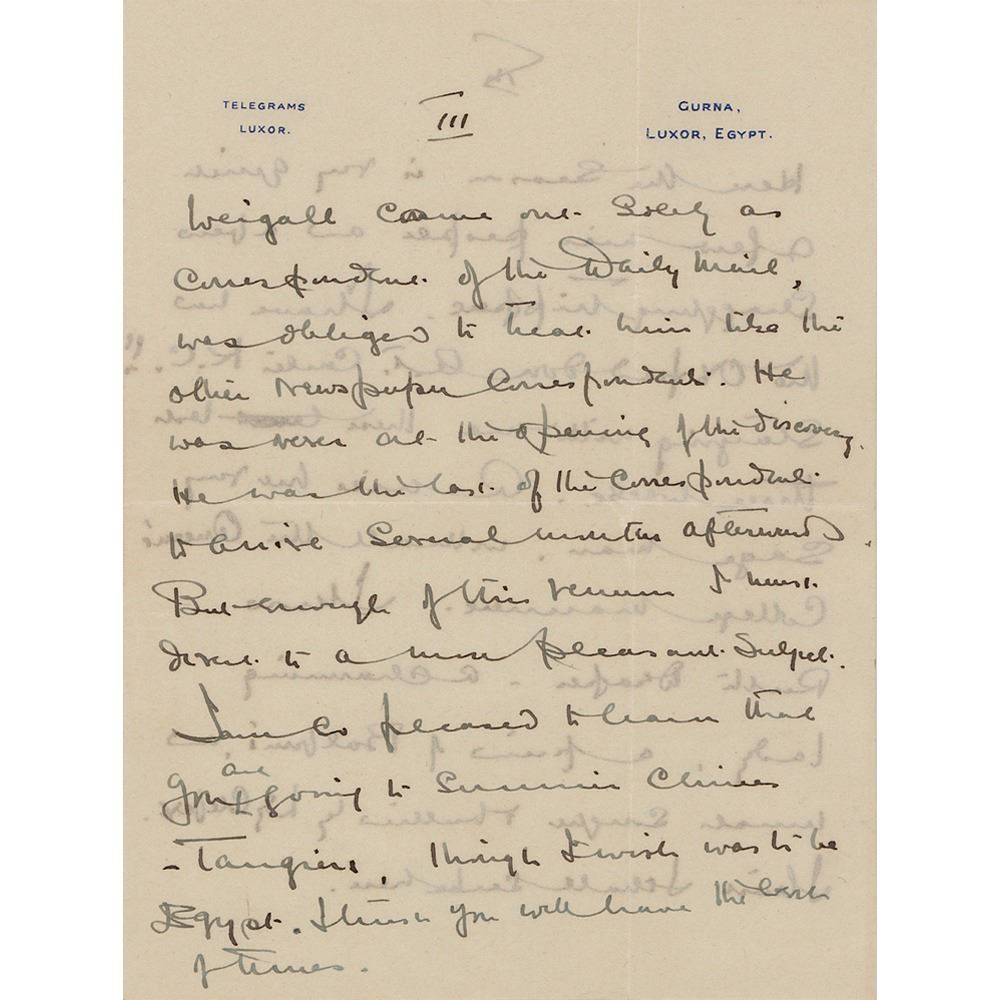 TELEGRAMS
LUXOR.
III
GURNA,
LUXOR, EGYPT.
Weigall came out solely as
Correspondent of the Daily Mail,
was obliged to treat him like the
other Newspaper Correspondents. He
was never at the opening of the discovery.
He was the last of the Correspondents
to arrive several months afterwards.
But enough of this venum I must
divert to a more pleasant subject.
I am so pleased to learn that
you are going to summer climes
- Tangiers, though I wish was to be
Egypt. I trust you will have the best
of times.